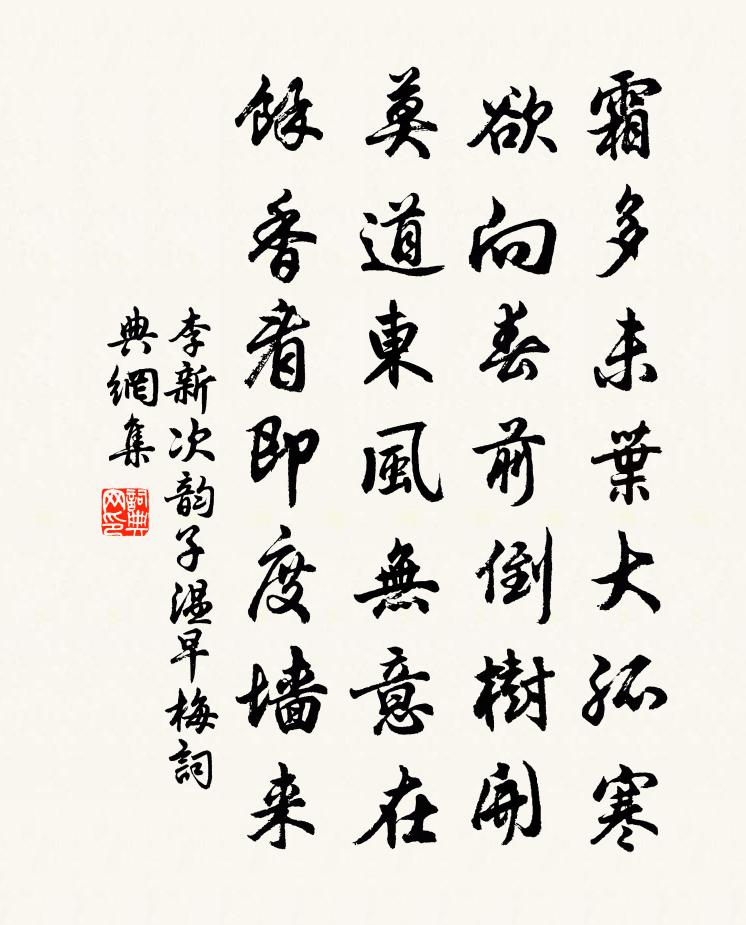 霜多未葉大孤寒
欲向春前倒樹開
莫道東風無意在
餘香看即度墻来
李新次韵子温早梅詞
典網集
詞典網印